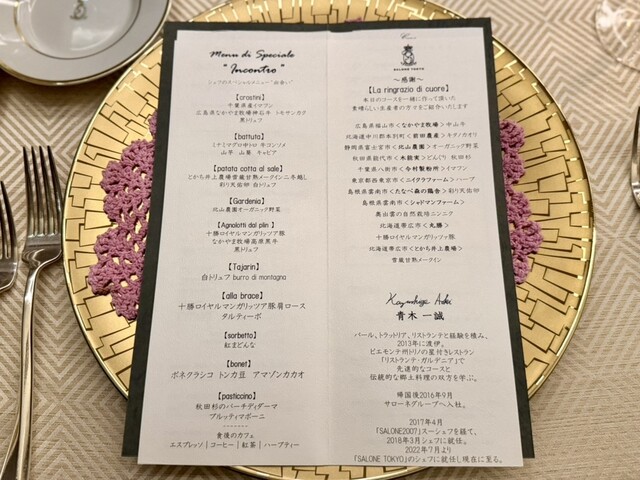 Menu di Speciale
"Incontro"
シェフのスペシャルメニュー "出会い"
【crostini】
千葉県産イマワン
広島県なかやま牧場神石牛 トモサンカク
黒トリュフ
【battuta】
ミナミマグロ中トロ 牛コンソメ
山芋 山葵 キャビア
【patata cotta al sale】
とかち井上農場雪蔵甘熟メークイン二冬越し
彩り天佑卵 白トリュフ
【Gardenia】
北山農園オーガニック野菜
【Agnolotti dal plin】
十勝ロイヤルマンガリッツァ豚
なかやま牧場高原黒牛
黒トリュフ
【Tajarin】
白トリュフ burro di montagna
【alla brace】
十勝ロイヤルマンガリッツァ豚肩ロース
タルティーボ
【sorbetto】
紅まどんな
【bonet】
ボネグラシコ トンカ豆 アマゾンカカオ
【pasticcino】
秋田杉のバーチディダーマ
ブルッティマボーニ
--------
食後のカフェ
エスプレッソ | コーヒー | 紅茶 | ハーブティー
SALONE TOKYO
～感謝～
【La ringrazio di cuore】
本日のコースを一緒に作って頂いた
素晴らしい生産者の方々をご紹介いたします
広島県福山市<なかやま牧場>中山牛
北海道中川郡本別町<前田農産>キタノカオリ
静岡県富士宮市<北山農園>オーガニック野菜
秋田県能代市<木能実>どんぐり 秋田杉
千葉県八街市<今村製粉所>イマワン
東京都西東京市<ニイクラファーム>ハーブ
島根県雲南市<たなべ森の鶏舎>彩り天佑卵
島根県雲南市<シャドマンファーム>
奥出雲の自然栽培ニンニク
北海道帯広市<丸勝>
十勝ロイヤルマンガリッツァ豚
北海道帯広市<とかち井上農場>
雪蔵甘熟メークイン
Kazushige Aoki
青木 一誠
バール、トラットリア、リストランテと経験を積み、
2013年に渡伊。
ピエモンテ州トリノの星付きレストラン
「リストランテ・ガルデニア」で
先進的なコースと
伝統的な郷土料理の双方を学ぶ。
帰国後2016年9月
サローネグループへ入社。
2017年4月
「SALONE2007」スーシェフを経て、
2018年3月シェフに就任。
2022年7月より
「SALONE TOKYO」のシェフに就任し現在に至る。